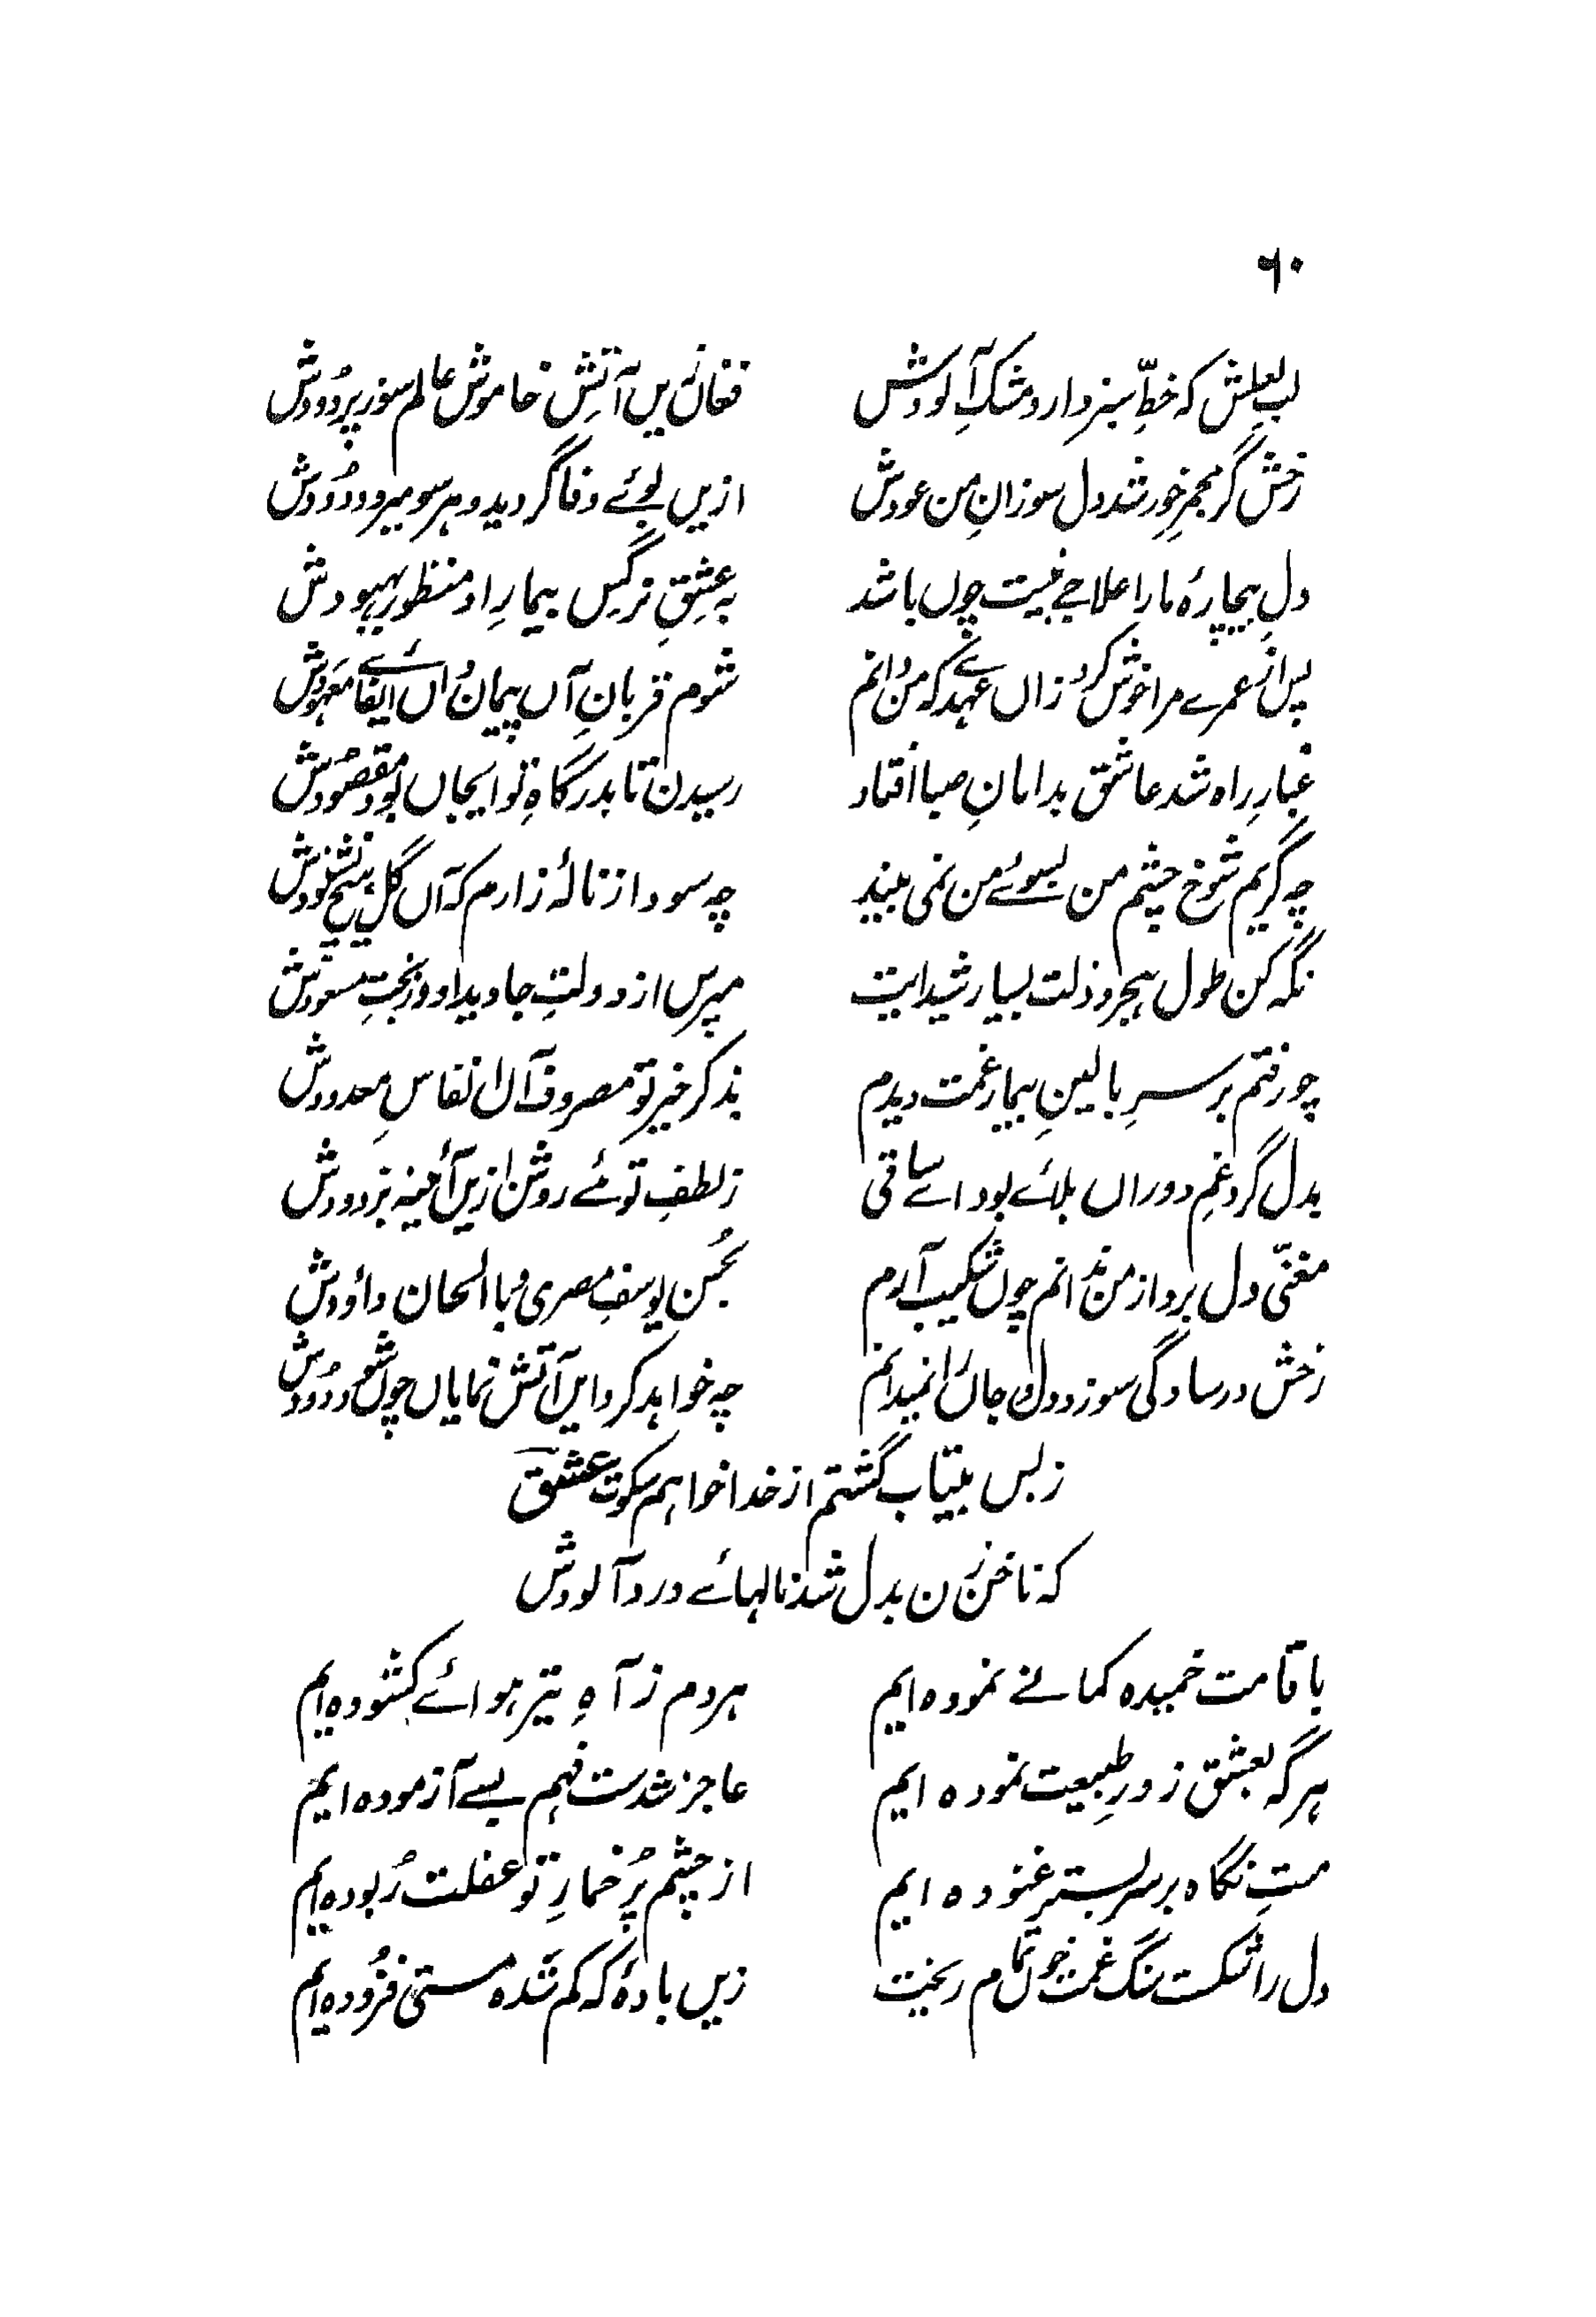 ۶۰
لبِ لعلش که خطِّ سبز دارد مشک آلودش فغاں زیں آتشِ خاموش عالم سوز پر دُودش
رخش گر مجمرِ خور شد دل سوزانِ من عودش ازیں بوئے وفا گردید و هر سو میرود دُودش
دلِ بیچارۂ ما را علاجے نیست چوں باشد به عشقِ نرگسِ بیمارِ او منظور بہبودش
پس از عمرے مرا خوش کرد زاں عہدے که من دانم شوم قربانِ آں پیمان و آں ایفائے معہودش
غبارِ راه شد عاشق بدامانِ صبا افتاد رسیدن تا بدرگاهِ تو ایجاں بود مقصُودش
چه گریم شوخ چشم من بسوئے من نمی بیند چه سود از نالۂ زارم که آں گل ہیچ نشنودش
نگه کن طول ہجر و ذلت بسیار شیدایت مپرس از دولتِ جاوید او وز بختِ مسعودش
چو رفتم بر سرِ بالینِ بیمار غمت دیدم بذکر خیر تو مصروف آں انفاسِ معدودش
بدل گرد غمِ دوراں بلائے بود اے ساقی ز لطفِ تو مئے روشن ازیں آئینه بزدودش
مغنّی دل برد از من ندانم چوں شکیب آرم بحُسنِ یوسفِ مصری و با الحان داؤدش
رخش در سادگی سوزد دل و جاں را نمیدانم چه خواہد کرد ایں آتش نمایاں چوں شود دُودش
ز بس بیتاب گشتم از خدا خواہم سکوت عشقؔ
که ناخن زن بدل شد نالہائے درد آلودش
با قامت خمیده کمانے نموده ایم هر دم ز آهِ تیر ہوائے کشوده ایم
ہر گه بعشق زورِ طبیعت نموده ایم عاجز شدست فہم بسے آزموده ایم
مستِ نگاه بر سر بستر غنوده ایم از چشم پُر خمارِ تو غفلت رُبوده ایم
دل را شکست سنگ غمت خوں تمام ریخت زیں بادۂ که کم شده مستی فزُوده ایم